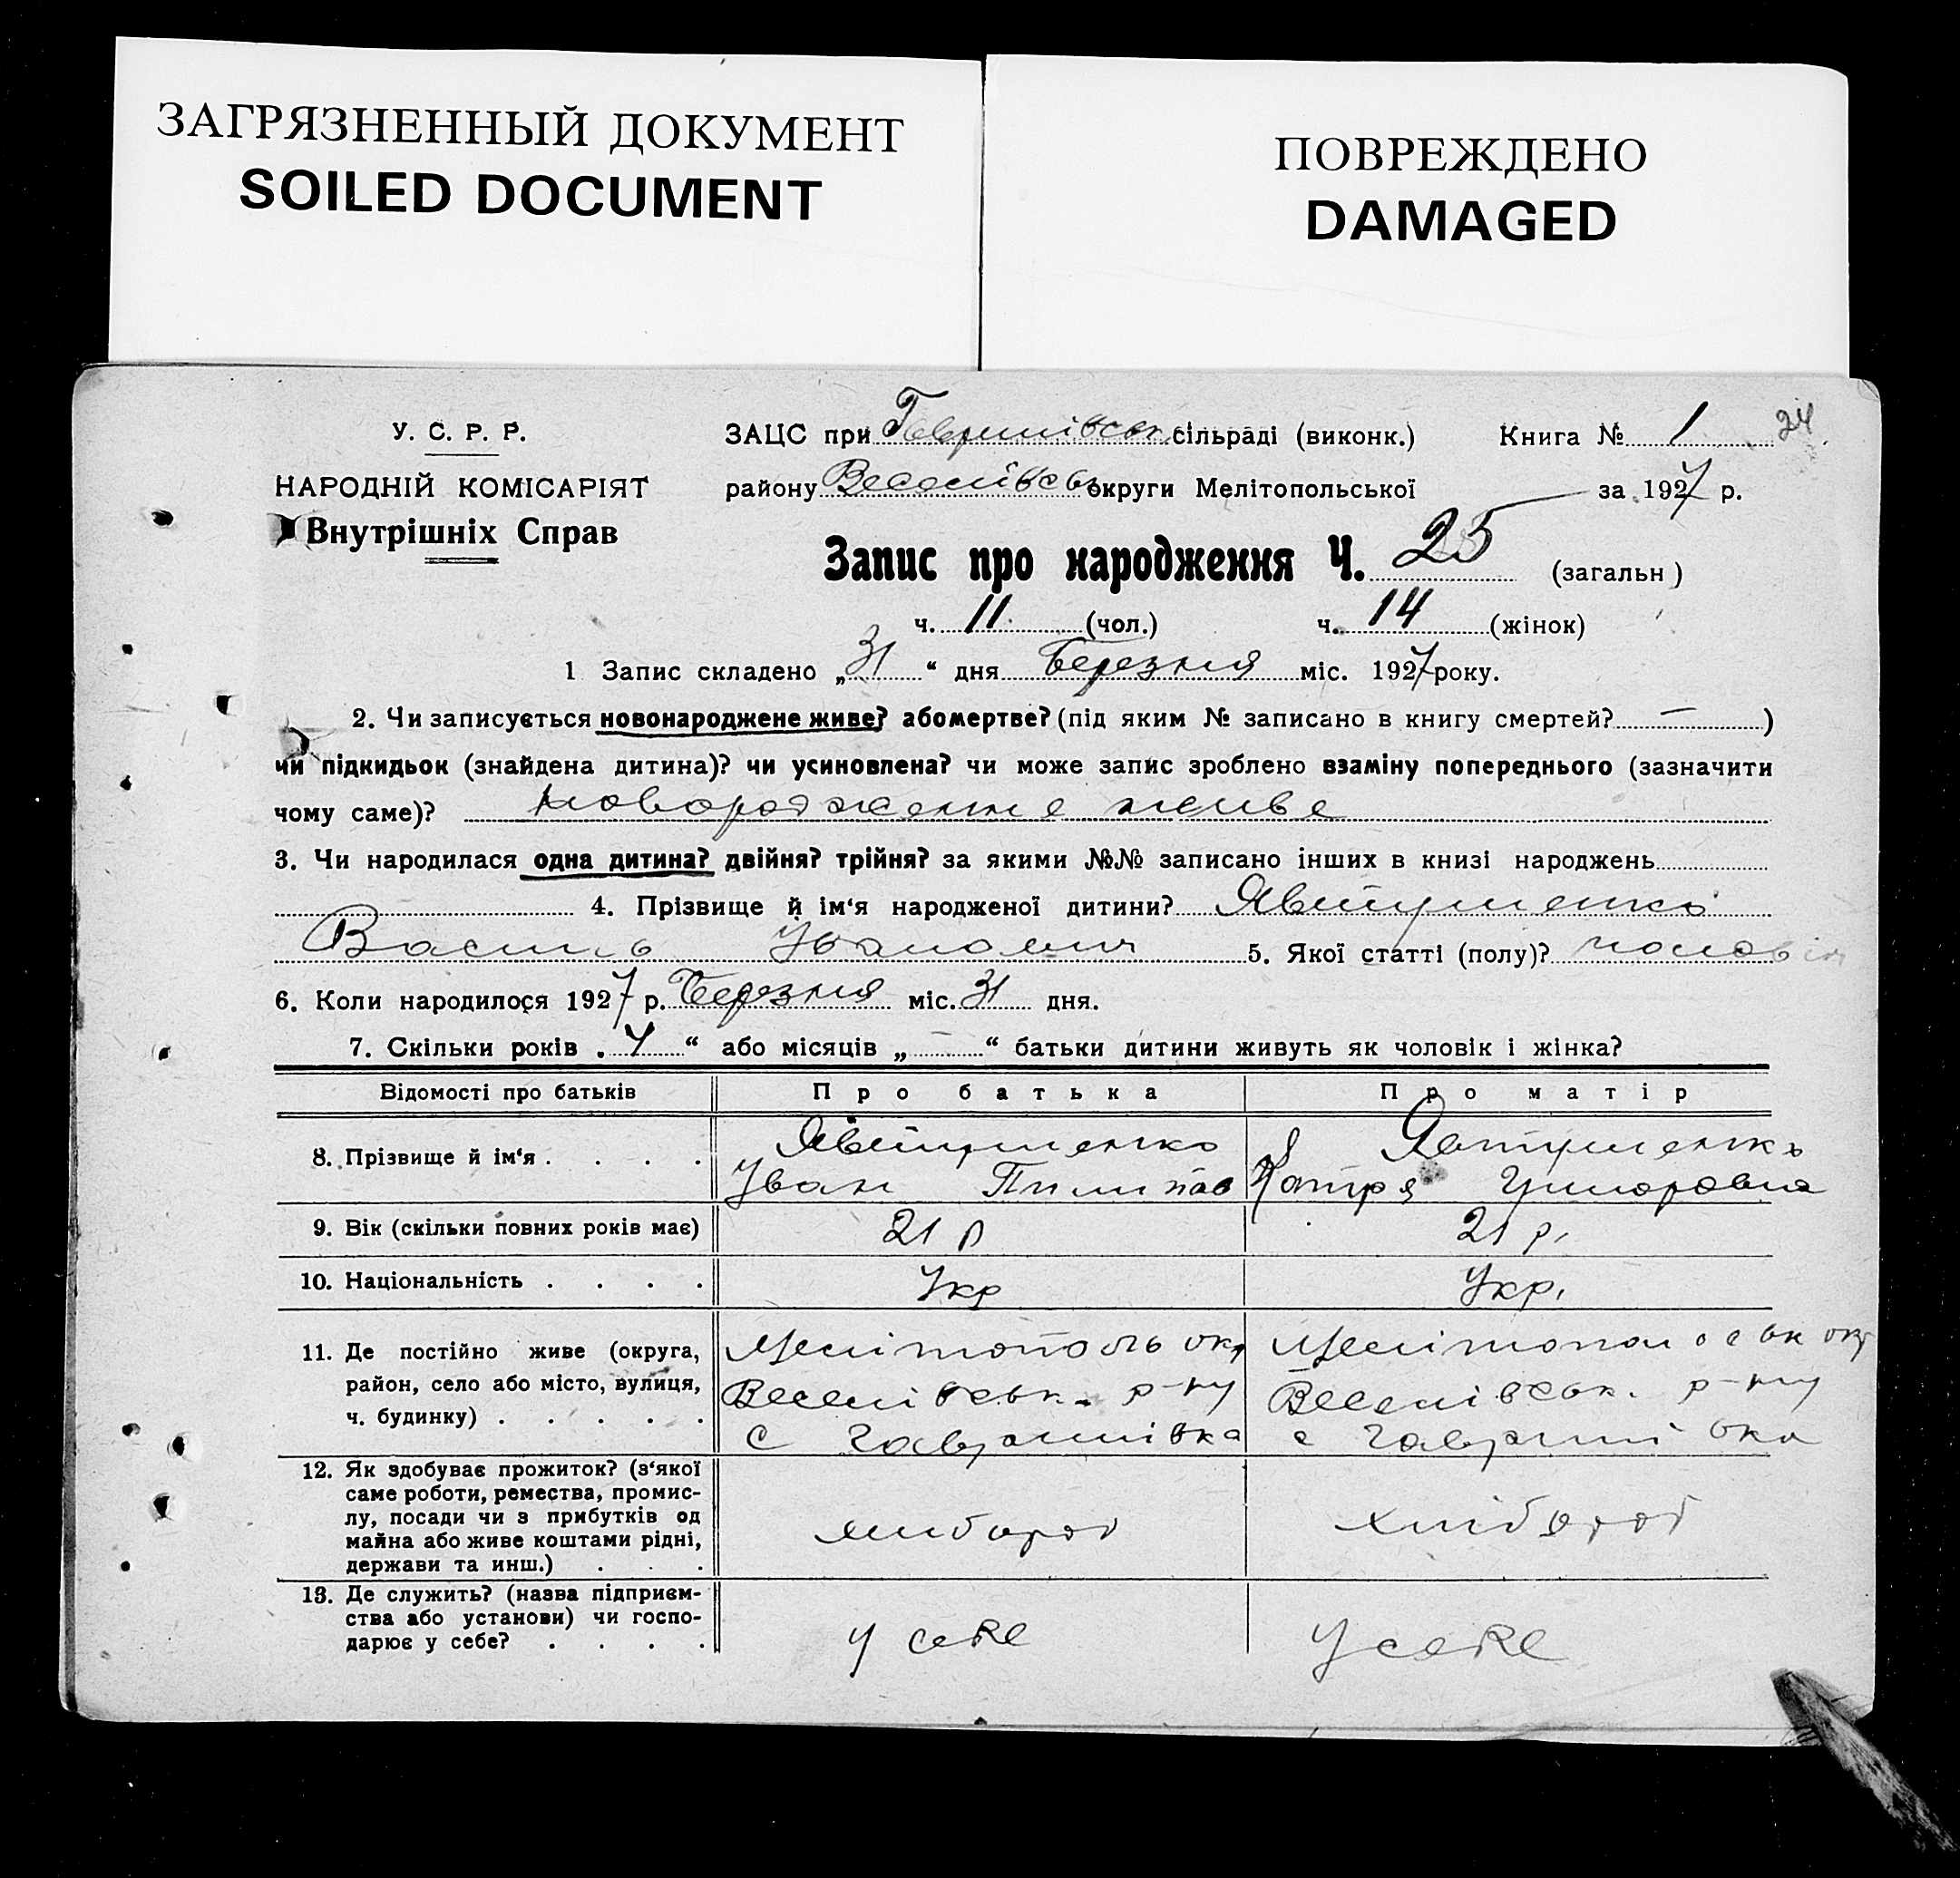 ЗАГРЯЗНЕННЫЙ ДОКУМЕНТ
SOILED DOCUMENT
ПОВРЕЖДЕНО
DAMAGED
У. С. Р. Р.
НАРОДНІЙ КОМІСАРІЯТ
Внутрішніх Справ
ЗАЦС при Гаврилівськ. сільраді (виконк.) Книга № 1 24
району Веселівсь округи Мелітопольської за 1927 р.
Запис про народження Ч. 25 (загальн)
ч. 11 (чол.) ч. 14 (жінок)
1 Запис складено „31“ дня Березня міс. 1927 року.
2. Чи записується новонароджене живе? або мертве? (під яким № записано в книгу смертей? — )
чи підкидьок (знайдена дитина)? чи усиновлена? чи може запис зроблено взаміну попереднього (зазначити
чому саме)? живе
3. Чи народилася одна дитина? двійня? трійня? за якими №№ записано інших в книзі народжень
4. Прізвище й ім‘я народженої дитини? Явтушенко
Василь Іванович 5. Якої статті (полу)? чоловіч
6. Коли народилося 1927 р. Березня міс. 31 дня.
7. Скільки років „ “ або місяців „—“ батьки дитини живуть як чоловік і жінка?
Відомості про батьків Про батька Про матір
8. Прізвище й ім‘я . . . . Явтушенко Явтушенко
Іван Пилипов Катря
9. Вік (скільки повних років має) 21 р 21 р.
10. Національність . . . . Укр Укр.
11. Де постійно живе (округа, район, село або місто, вулиця, ч. будинку) . . . . .
Мелітополь окр Мелітопольськ окр
Веселівськ. р-ну Веселівськ. р-ну
с Гаврилівка с Гаврилівка
12. Як здобуває прожиток? (з‘якої
саме роботи, ремества, промис-
лу, посади чи з прибутків од
майна або живе коштами рідні,
держави та инш.) . . .
хлібороб хлібороб
13. Де служить? (назва підприєм-
ства або установи) чи госпо-
дарює у себе? . . . .
у себе у себе